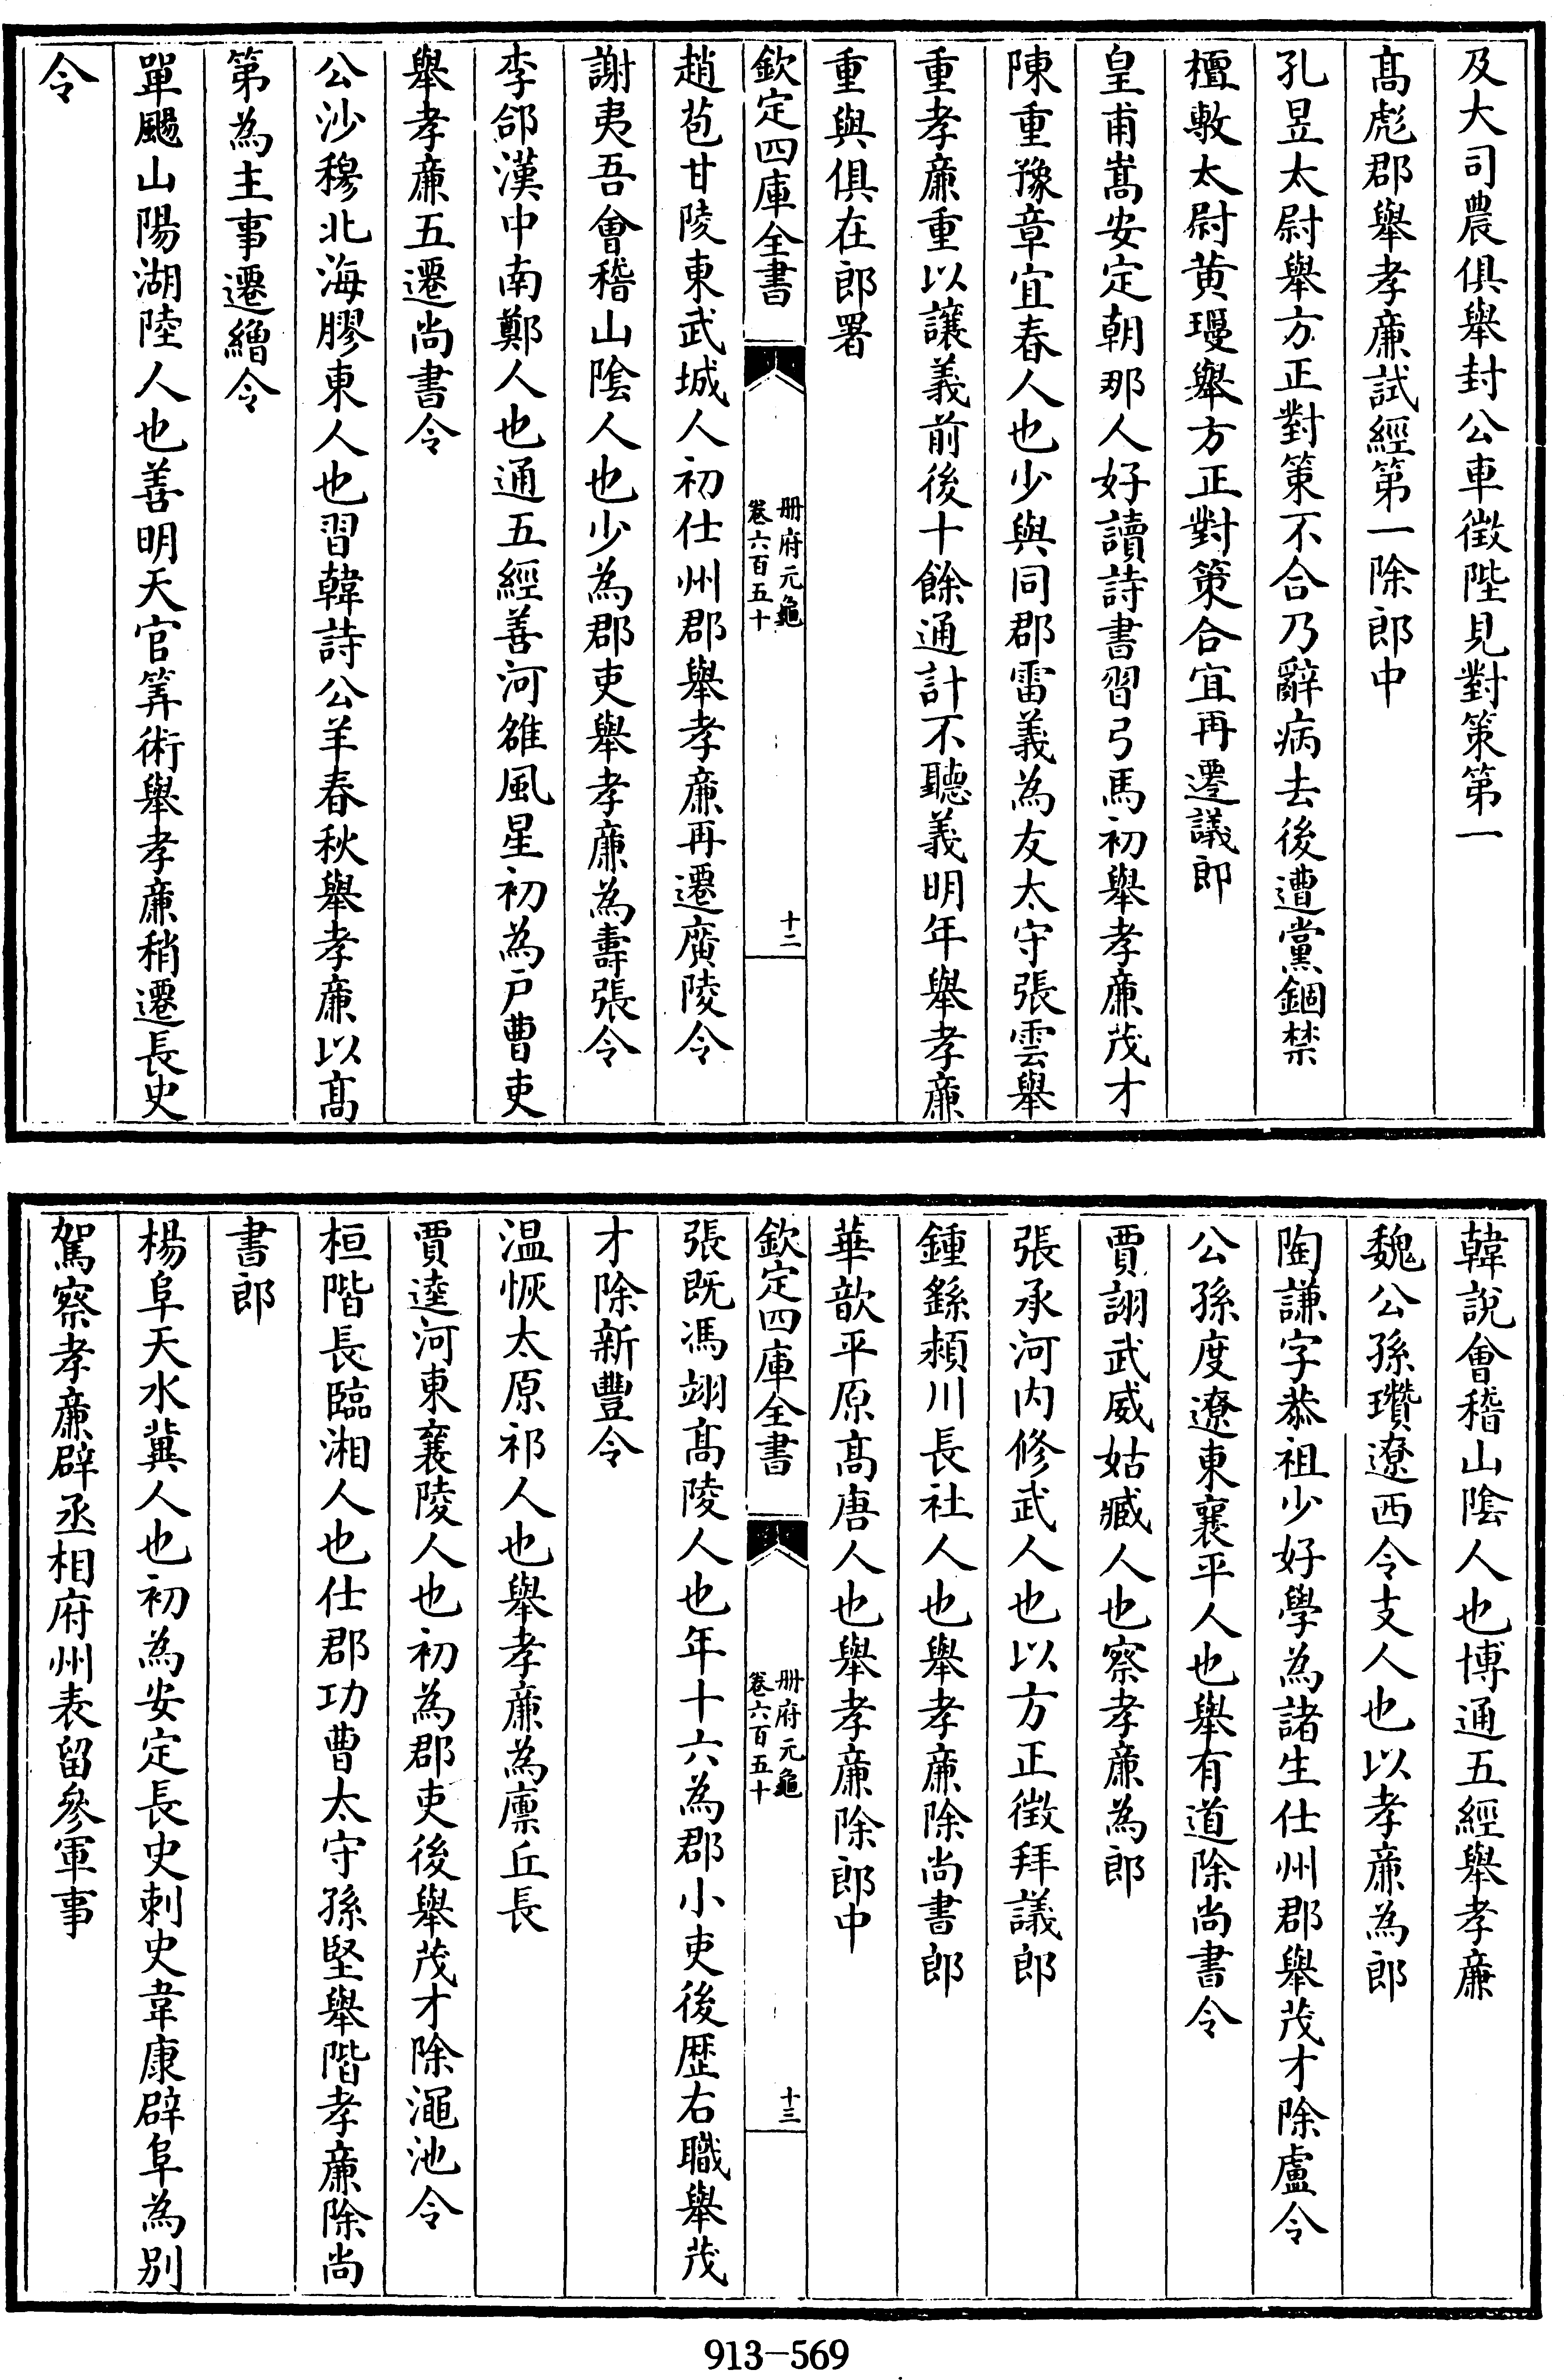 及大司農俱舉封公車徵陛見對策第一
髙彪郡舉孝廉試經第一除郎中
孔昱太尉舉方正對策不合乃辭病去後遭黨錮禁
檀敷太尉黄瓊舉方正對策合宜再遷議郎
皇甫嵩安定朝那人好讀詩書習弓馬初舉孝廉茂才
陳重豫章宜春人也少與同郡雷義為友太守張雲舉
重孝廉重以讓義前後十餘通計不聽義明年舉孝廉
重與俱在郎署
欽定四庫全書
册府元龜
卷六百五十
十二
趙苞甘陵東武城人初仕州郡舉孝廉再遷廣陵令
謝夷吾會稽山陰人也少為郡吏舉孝廉為壽張令
李郃漢中南鄭人也通五經善河雒風星初為戸曹吏
舉孝廉五遷尚書令
公沙穆北海膠東人也習韓詩公羊春秋舉孝廉以髙
第為主事遷繒令
單颺山陽湖陸人也善明天官筭術舉孝廉稍遷長史
令
韓說會稽山陰人也博通五經舉孝廉
魏公孫瓚遼西令支人也以孝廉為郎
陶謙字恭祖少好學為諸生仕州郡舉茂才除盧令
公孫度遼東襄平人也舉有道除尚書令
賈詡武威姑臧人也察孝廉為郎
張承河内修武人也以方正徵拜議郎
鍾繇頴川長社人也舉孝廉除尚書郎
華歆平原髙唐人也舉孝廉除郎中
欽定四庫全書
册府元龜
卷六百五十
十三
張既馮翊髙陵人也年十六為郡小吏後歴右職舉茂
才除新豐令
温恢太原祁人也舉孝廉為廪丘長
賈逵河東襄陵人也初為郡吏後舉茂才除澠池令
桓階長臨湘人也仕郡功曹太守孫堅舉階孝廉除尚
書郎
楊阜天水冀人也初為安定長史刺史韋康辟阜為别
駕察孝廉辟丞相府州表留參軍事
913-569